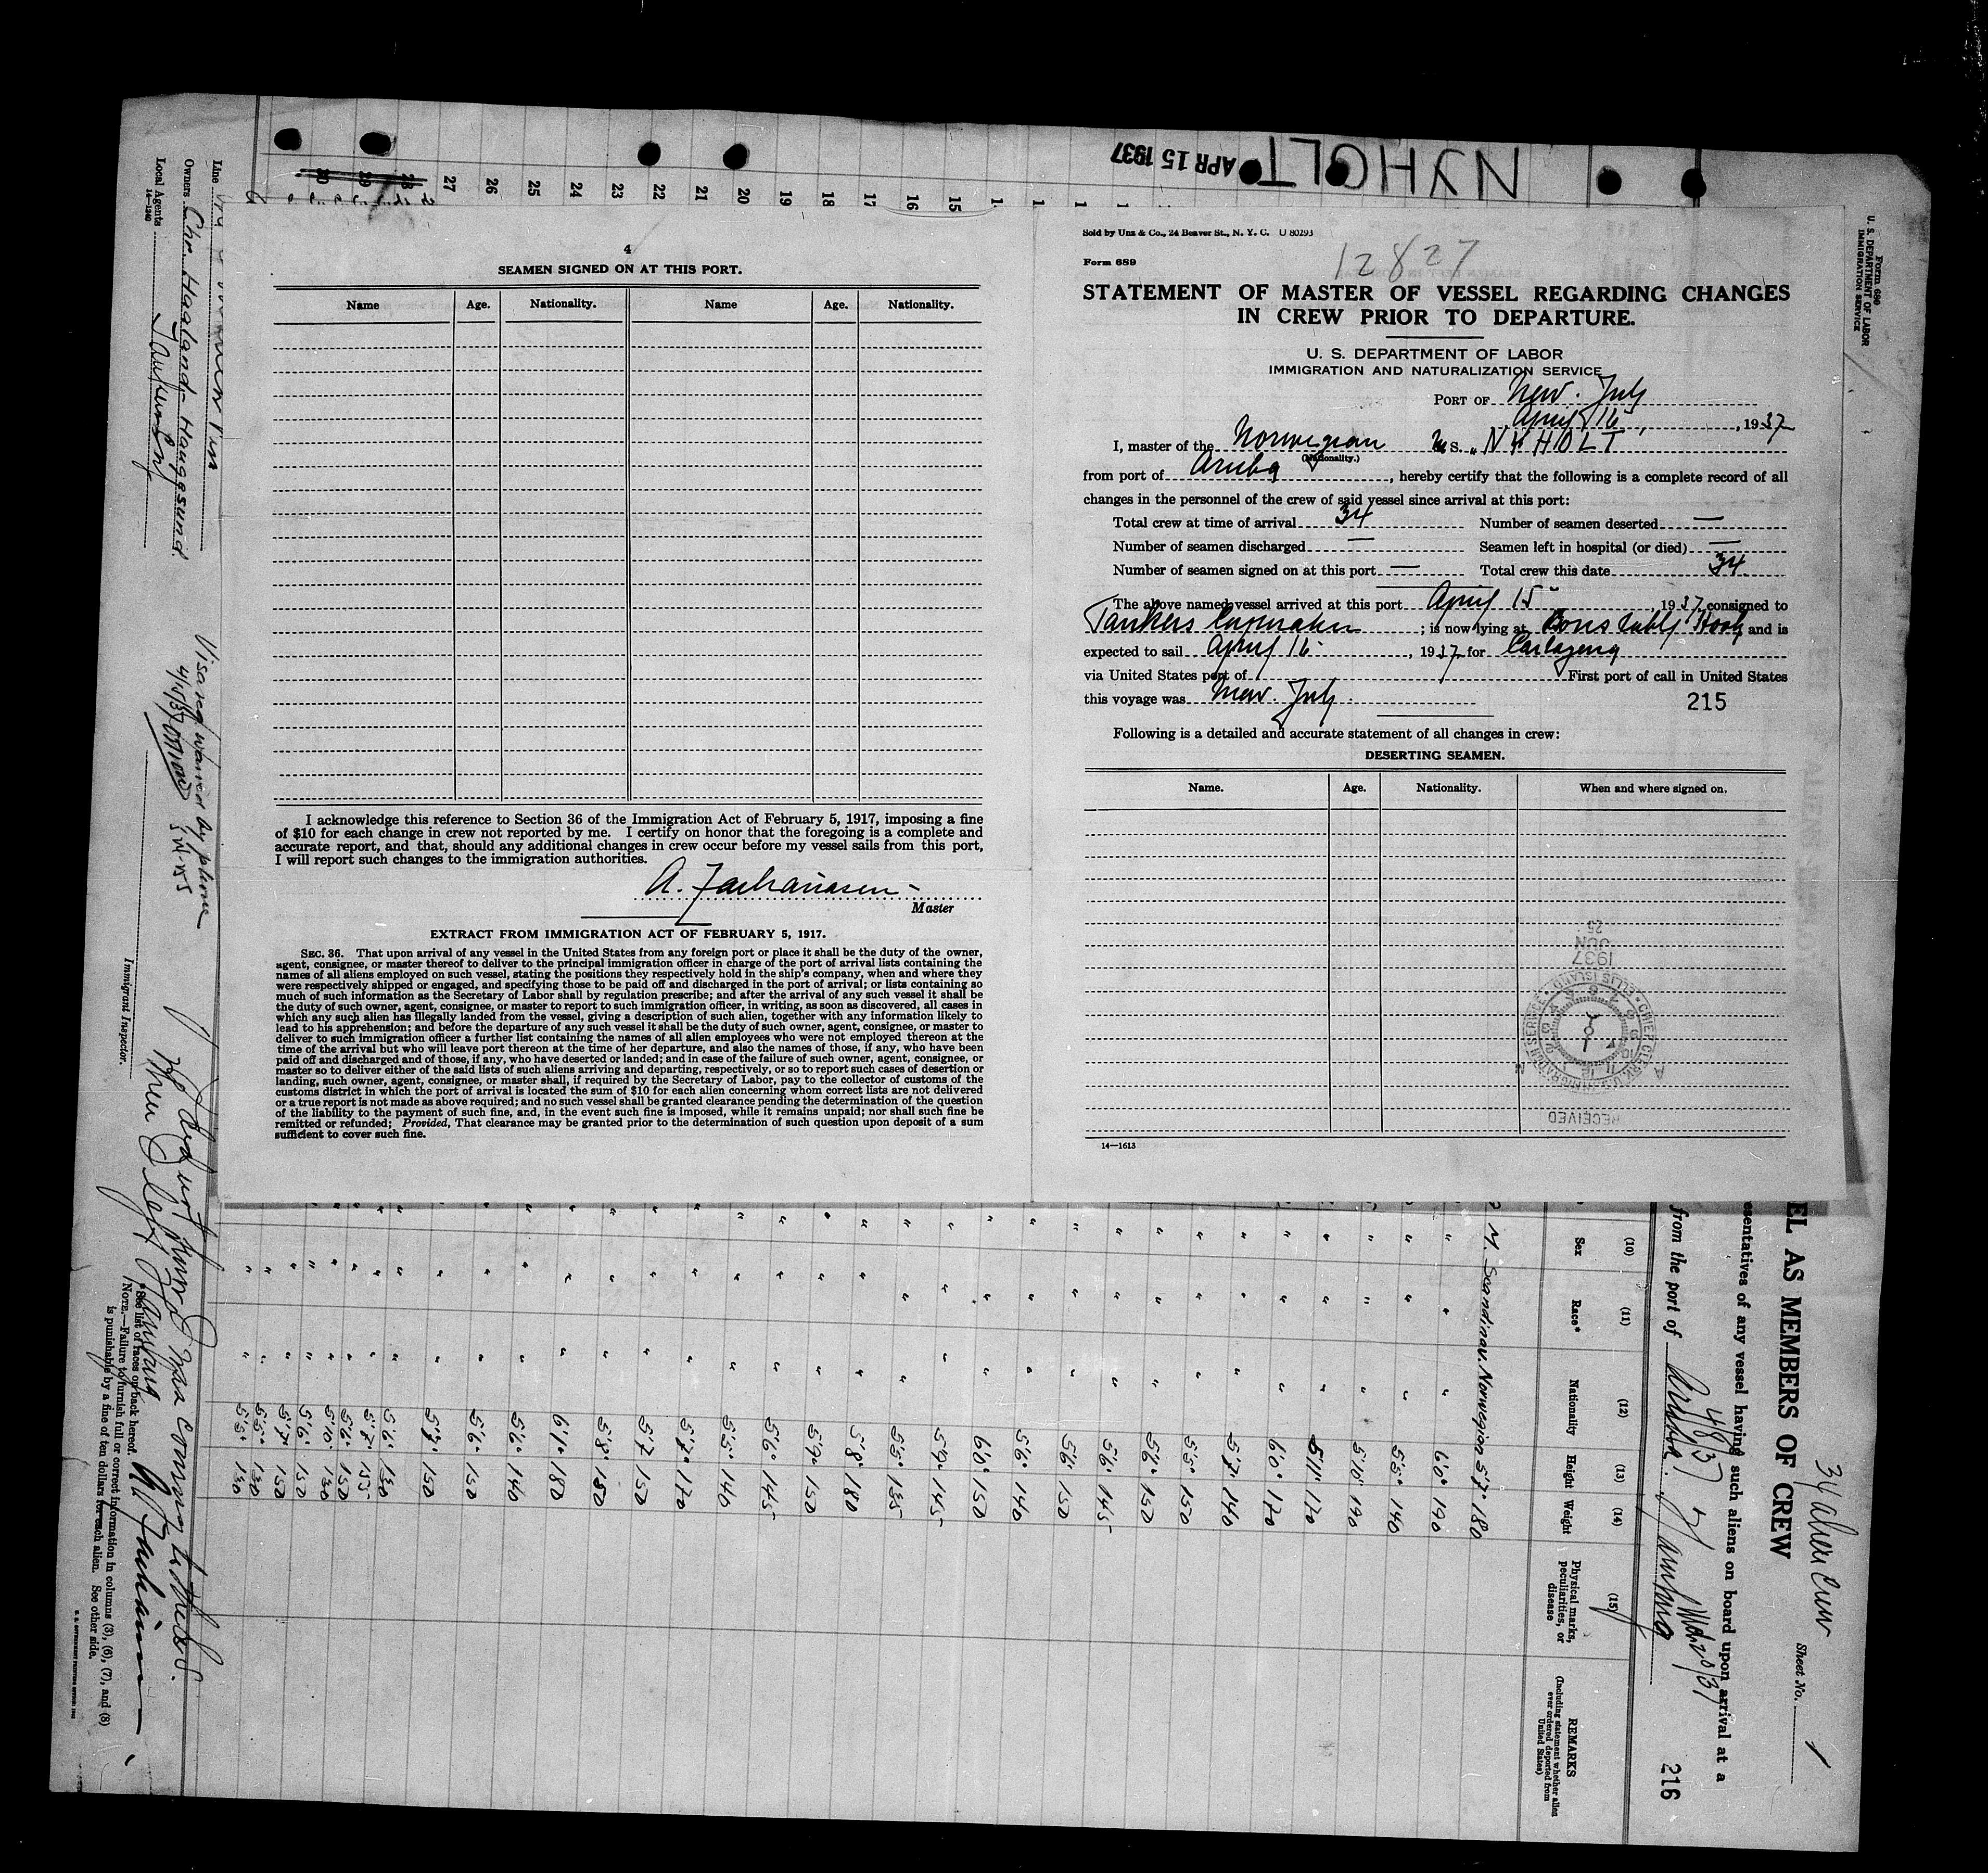 NYHOLT
APR 15 1937
27 26 25 24 23 22 21 20 19 18 17 16 15
4
SEAMEN SIGNED ON AT THIS PORT.
Name Age. Nationality. Name Age. Nationality.
I acknowledge this reference to Section 36 of the Immigration Act of February 5, 1917, imposing a fine
of $10 for each change in crew not reported by me. I certify on honor that the foregoing is a complete and
accurate report, and that, should any additional changes in crew occur before my vessel sails from this port,
I will report such changes to the immigration authorities.
A. Zachariassen
Master
EXTRACT FROM IMMIGRATION ACT OF FEBRUARY 5, 1917.
SEC. 36. That upon arrival of any vessel in the United States from any foreign port or place it shall be the duty of the owner,
agent, consignee, or master thereof to deliver to the principal immigration officer in charge of the port of arrival lists containing the
names of all aliens employed on such vessel, stating the positions they respectively hold in the ship's company, when and where they
were respectively shipped or engaged, and specifying those to be paid off and discharged in the port of arrival; or lists containing so
much of such information as the Secretary of Labor shall by regulation prescribe; and after the arrival of any such vessel it shall be
the duty of such owner, agent, consignee, or master to report to such immigration officer, in writing, as soon as discovered, all cases in
which any such alien has illegally landed from the vessel, giving a description of such alien, together with any information likely to
lead to his apprehension; and before the departure of any such vessel it shall be the duty of such owner, agent, consignee, or master to
deliver to such immigration officer a further list containing the names of all alien employees who were not employed thereon at the
time of the arrival but who will leave port thereon at the time of her departure, and also the names of those, if any, who have been
paid off and discharged and of those, if any, who have deserted or landed; and in case of the failure of such owner, agent, consignee, or
master so to deliver either of the said lists of such aliens arriving and departing, respectively, or so to report such cases of desertion or
landing, such owner, agent, consignee, or master shall, if required by the Secretary of Labor, pay to the collector of customs of the
customs district in which the port of arrival is located the sum of $10 for each alien concerning whom correct lists are not delivered
or a true report is not made as above required; and no such vessel shall be granted clearance pending the determination of the question
of the liability to the payment of such fine, and, in the event such fine is imposed, while it remains unpaid; nor shall such fine be
remitted or refunded; Provided, That clearance may be granted prior to the determination of such question upon deposit of a sum
sufficient to cover such fine.
Sold by Unz & Co., 24 Beaver St., N. Y. C. U 80293
Form 689
12827
STATEMENT OF MASTER OF VESSEL REGARDING CHANGES
IN CREW PRIOR TO DEPARTURE.
U. S. DEPARTMENT OF LABOR
IMMIGRATION AND NATURALIZATION SERVICE
PORT OF New. July
April 16, 1937
I, master of the Norwegian M S. "NYHOLT
(Nationality.)
from port of Aruba, hereby certify that the following is a complete record of all
changes in the personnel of the crew of said vessel since arrival at this port:
Total crew at time of arrival 34 Number of seamen deserted —
Number of seamen discharged — Seamen left in hospital (or died) —
Number of seamen signed on at this port — Total crew this date 34
The above named vessel arrived at this port April 15 1937 consigned to
Tankers Corporation; is now lying at Constably Hook and is
expected to sail April 16, 1937 for Cartagena
via United States port of First port of call in United States
this voyage was New. July
215
Following is a detailed and accurate statement of all changes in crew:
DESERTING SEAMEN.
Name. Age. Nationality. When and where signed on.
RECEIVED
1937 JUN 25
14—1613
Form 680
U. S. DEPARTMENT OF LABOR
IMMIGRATION SERVICE
EL AS MEMBERS OF CREW
34 alien crew
Sheet No. 1
esentatives of any vessel having such aliens on board upon arrival at a
from the port of Aruba
216
(10) (11) (12) (13) (14) (15)
Sex Race* Nationality Height Weight Physical marks, peculiarities, or disease
REMARKS
(Including statement whether alien ever ordered deported from United States)
M. Scandinav. Norwegian 5'7" 180
6'0" 190
5'5" 140
5'10" 190
5'11" 170
6'0" 170
5'7" 140
5'5" 150
5'6" 150
5'6" 145
5'6" 150
5'6" 140
6'0" 150
5'9" 145
5'5" 135
5'8" 180
5'9" 150
5'6" 145
5'5" 140
5'7" 170
5'7 150
5'8" 150
6'1" 180
5'6" 140
5'6" 150
5'7" 150
5'6" 130
5'7" 155
5'6" 150
5'10" 130
5'6" 150
5'7" 150
5'5" 130
5'5" 130
Line
Owners Chr. Haaland - Haugesund.
Local Agents
14—1240
Visa req. waived by phone
4/15/37
Immigrant Inspector.
*See list of races on back hereof.
NOTE.—Failure to furnish full or correct information in columns (3), (6), (7), and (8)
is punishable by a fine of ten dollars for each alien. See other side.